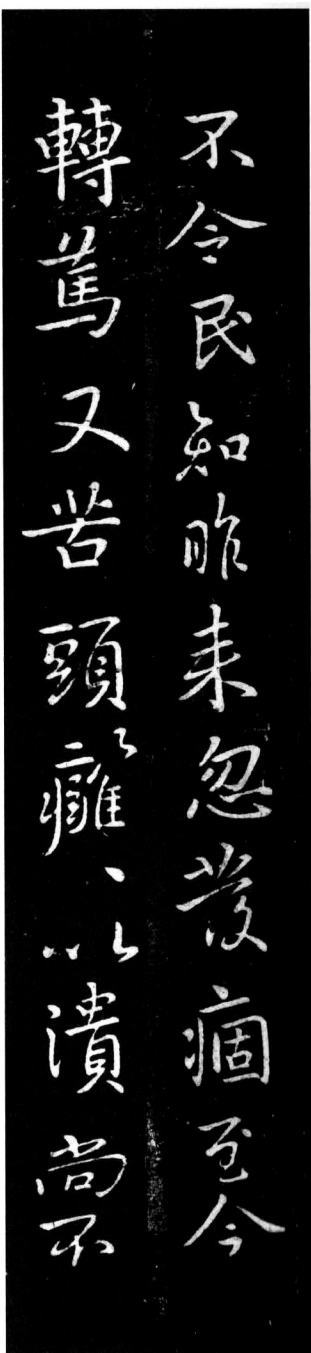 不令民知昨来忽發痼至今
轉篤又苦頭癰〻以潰尚不